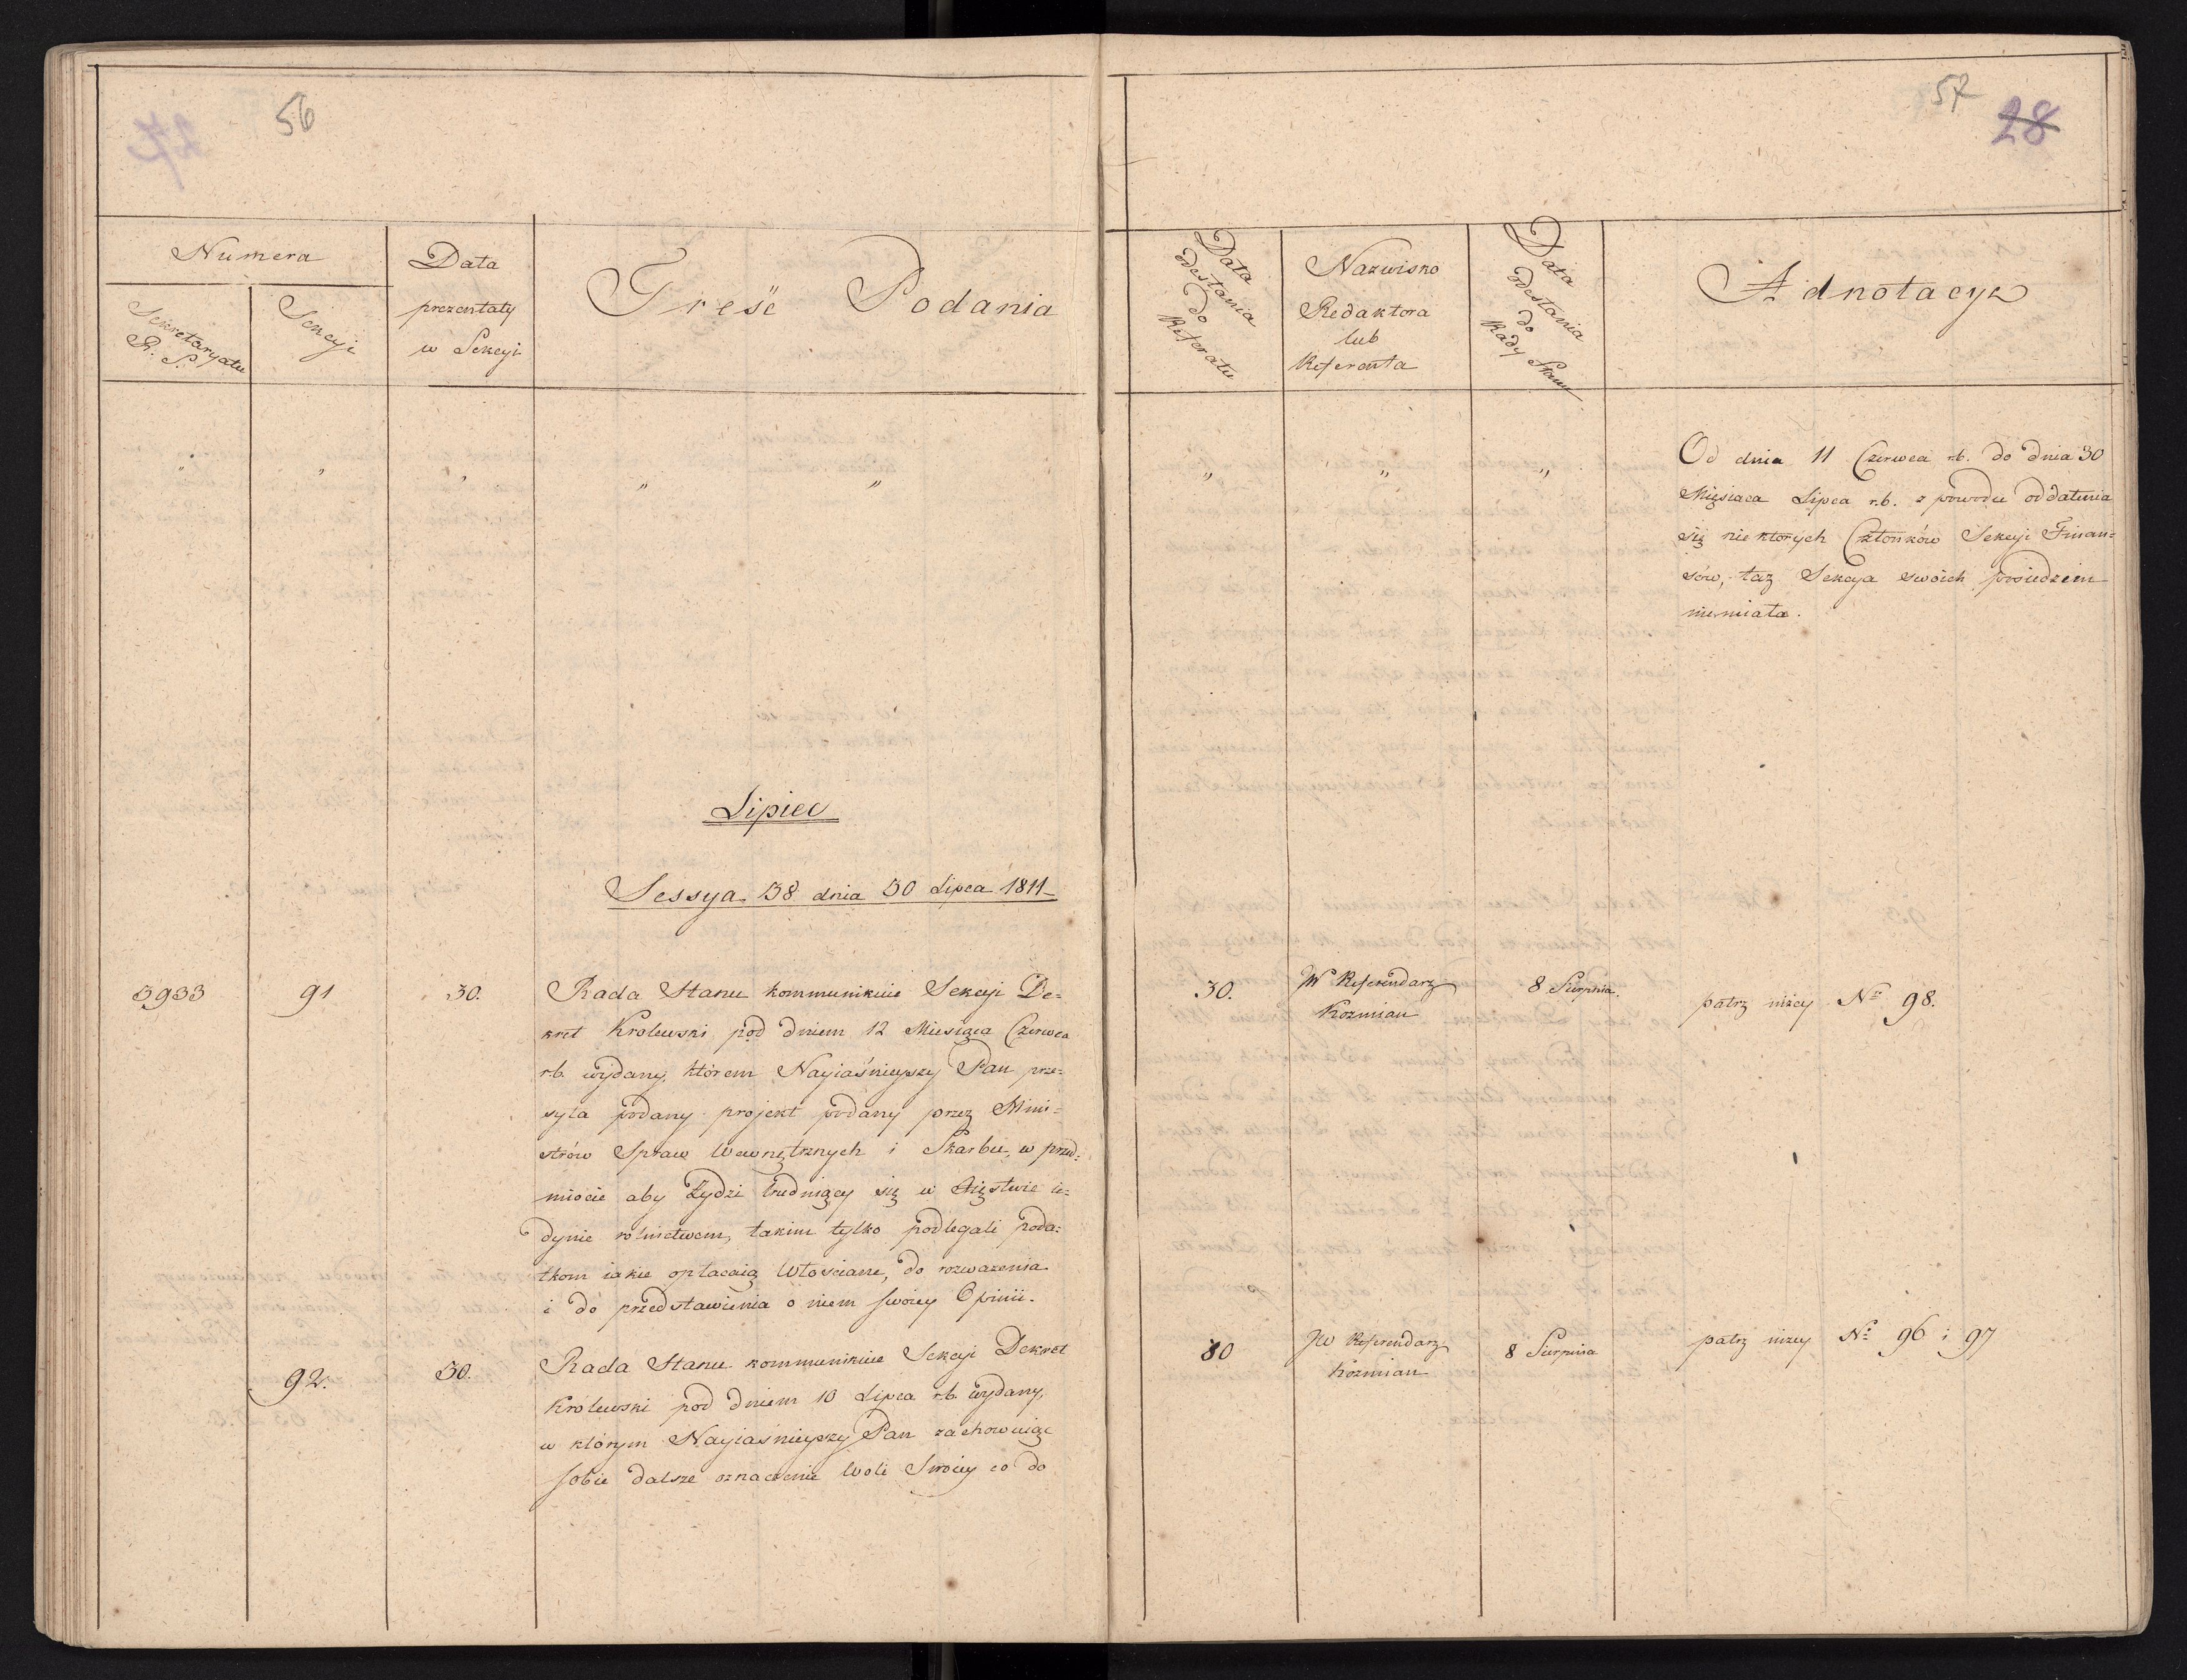 56
57
28
Numera
Sekretaryatu
R. S.
Sekcyi
Data
prezentaty
w Sekcyi
Treść Podania
Data
odesłania
do
Referatu
Nazwisko
Redaktora
lub
Referenta
Data
odesłania
do
Rady Stanu
Adnotacye
" " " " " " " "
Od dnia 11 Czerwca r.b. do dnia 30
Miesiąca Lipca r.b. z powodu oddalenia
się niektorych Członków Sekcyi Finan=
sów, taż Sekcya swoich posiedzeń
niemiała.
Lipiec
Sessya 38 dnia 30 Lipca 1811
3933
91
30.
Rada Stanu kommunikuie Sekcyi De=
kret Krolewski pod dniem 12 Miesiąca Czerwca
r.b. wydany, którem Nayiaśnieyszy Pan prze=
syła podany projekt podany przez Mini=
strów Spraw Wewnętrznych i Skarbu, w przed=
miocie aby Żydzi trudniący się w Xięstwie ie=
dynie rolnictwem, takim tylko podlegali poda=
tkom iakie opłacaią Włościanie, do rozważenia
i do przedstawienia o niem swoiey Opinii.
30.
JW Referendarz
Kozmian
8 Sierpnia.
patrz niżey Nº 98.
92.
30.
Rada Stanu kommunikuie Sekcyi Dekret
Krolewski pod dniem 10 Lipca r.b. wydany,
w którym Nayiaśnieyszy Pan zachowuiąc
sobie dalsze oznaczenie Woli Swoiey co do
30
JW Referendarz
Koźmian
8 Sierpnia
patrz niżey Nº 96 i 97